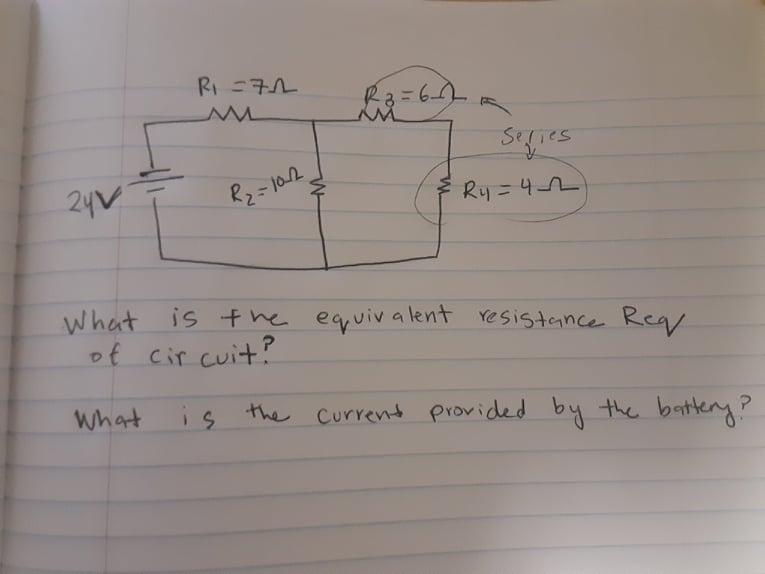 R1 = 7Ω
R3 = 6Ω
Series
24V
R2 = 10Ω
R4 = 4Ω
What is the equivalent resistance Req
of circuit?
What is the current provided by the battery?